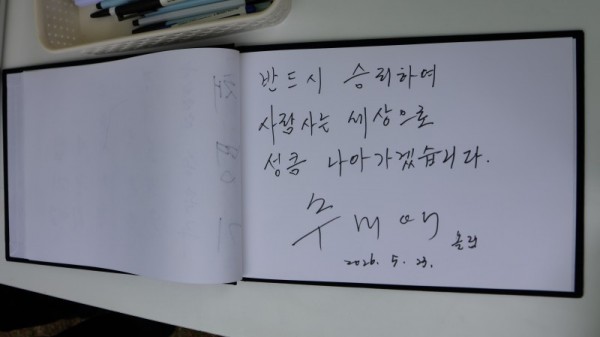 반드시 승리하여
사람사는 세상으로
성큼 나아가겠습니다.
추미애 올림
2026. 5. 23.